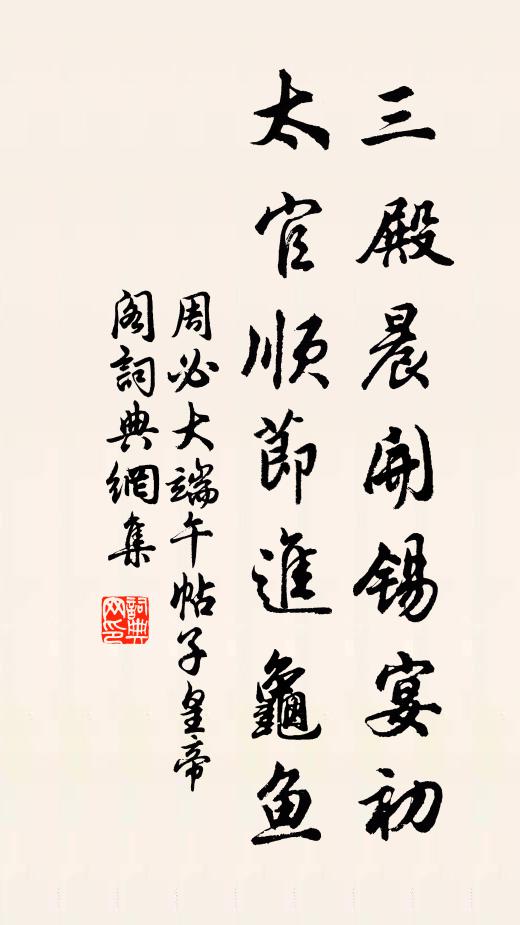 三殿晨開錫宴初
太官順節進龜魚
周必大端午帖子皇帝
閣詞典網集
詞典网印